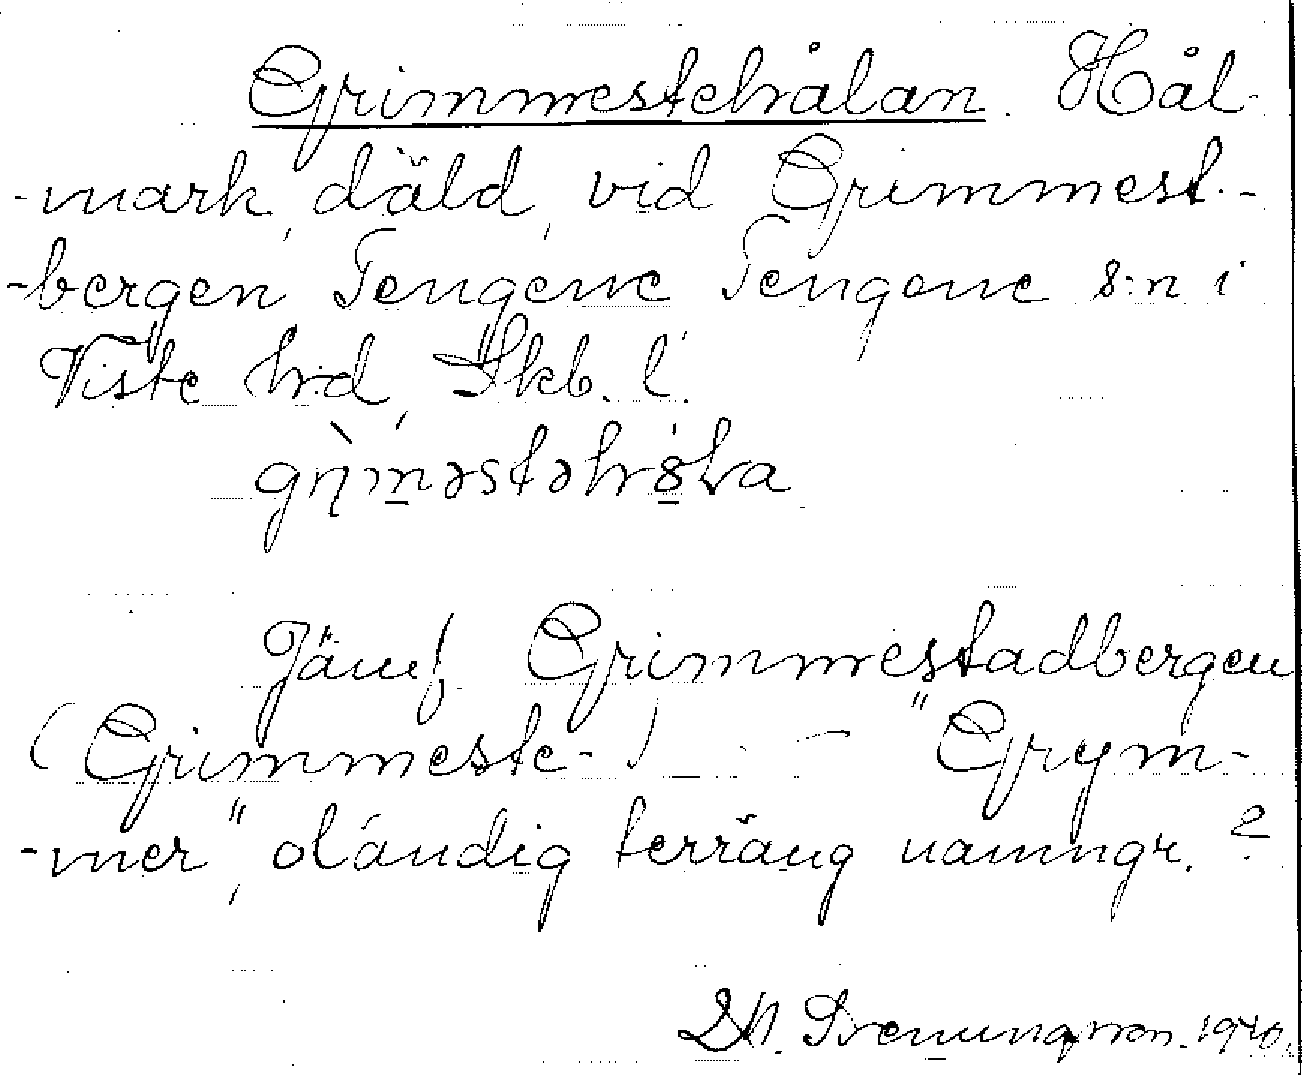 Grimmestehålan. Hål-
-mark, däld, vid Grimmest-
-bergen, Tengene Tengene s:n i
Viste hrd, Skb. l.
Jämf. Grimmestadbergen
(Grimmeste-) - "Grym-
-mer", oländig terräng namngr. ?
Svenungsson. 1940.